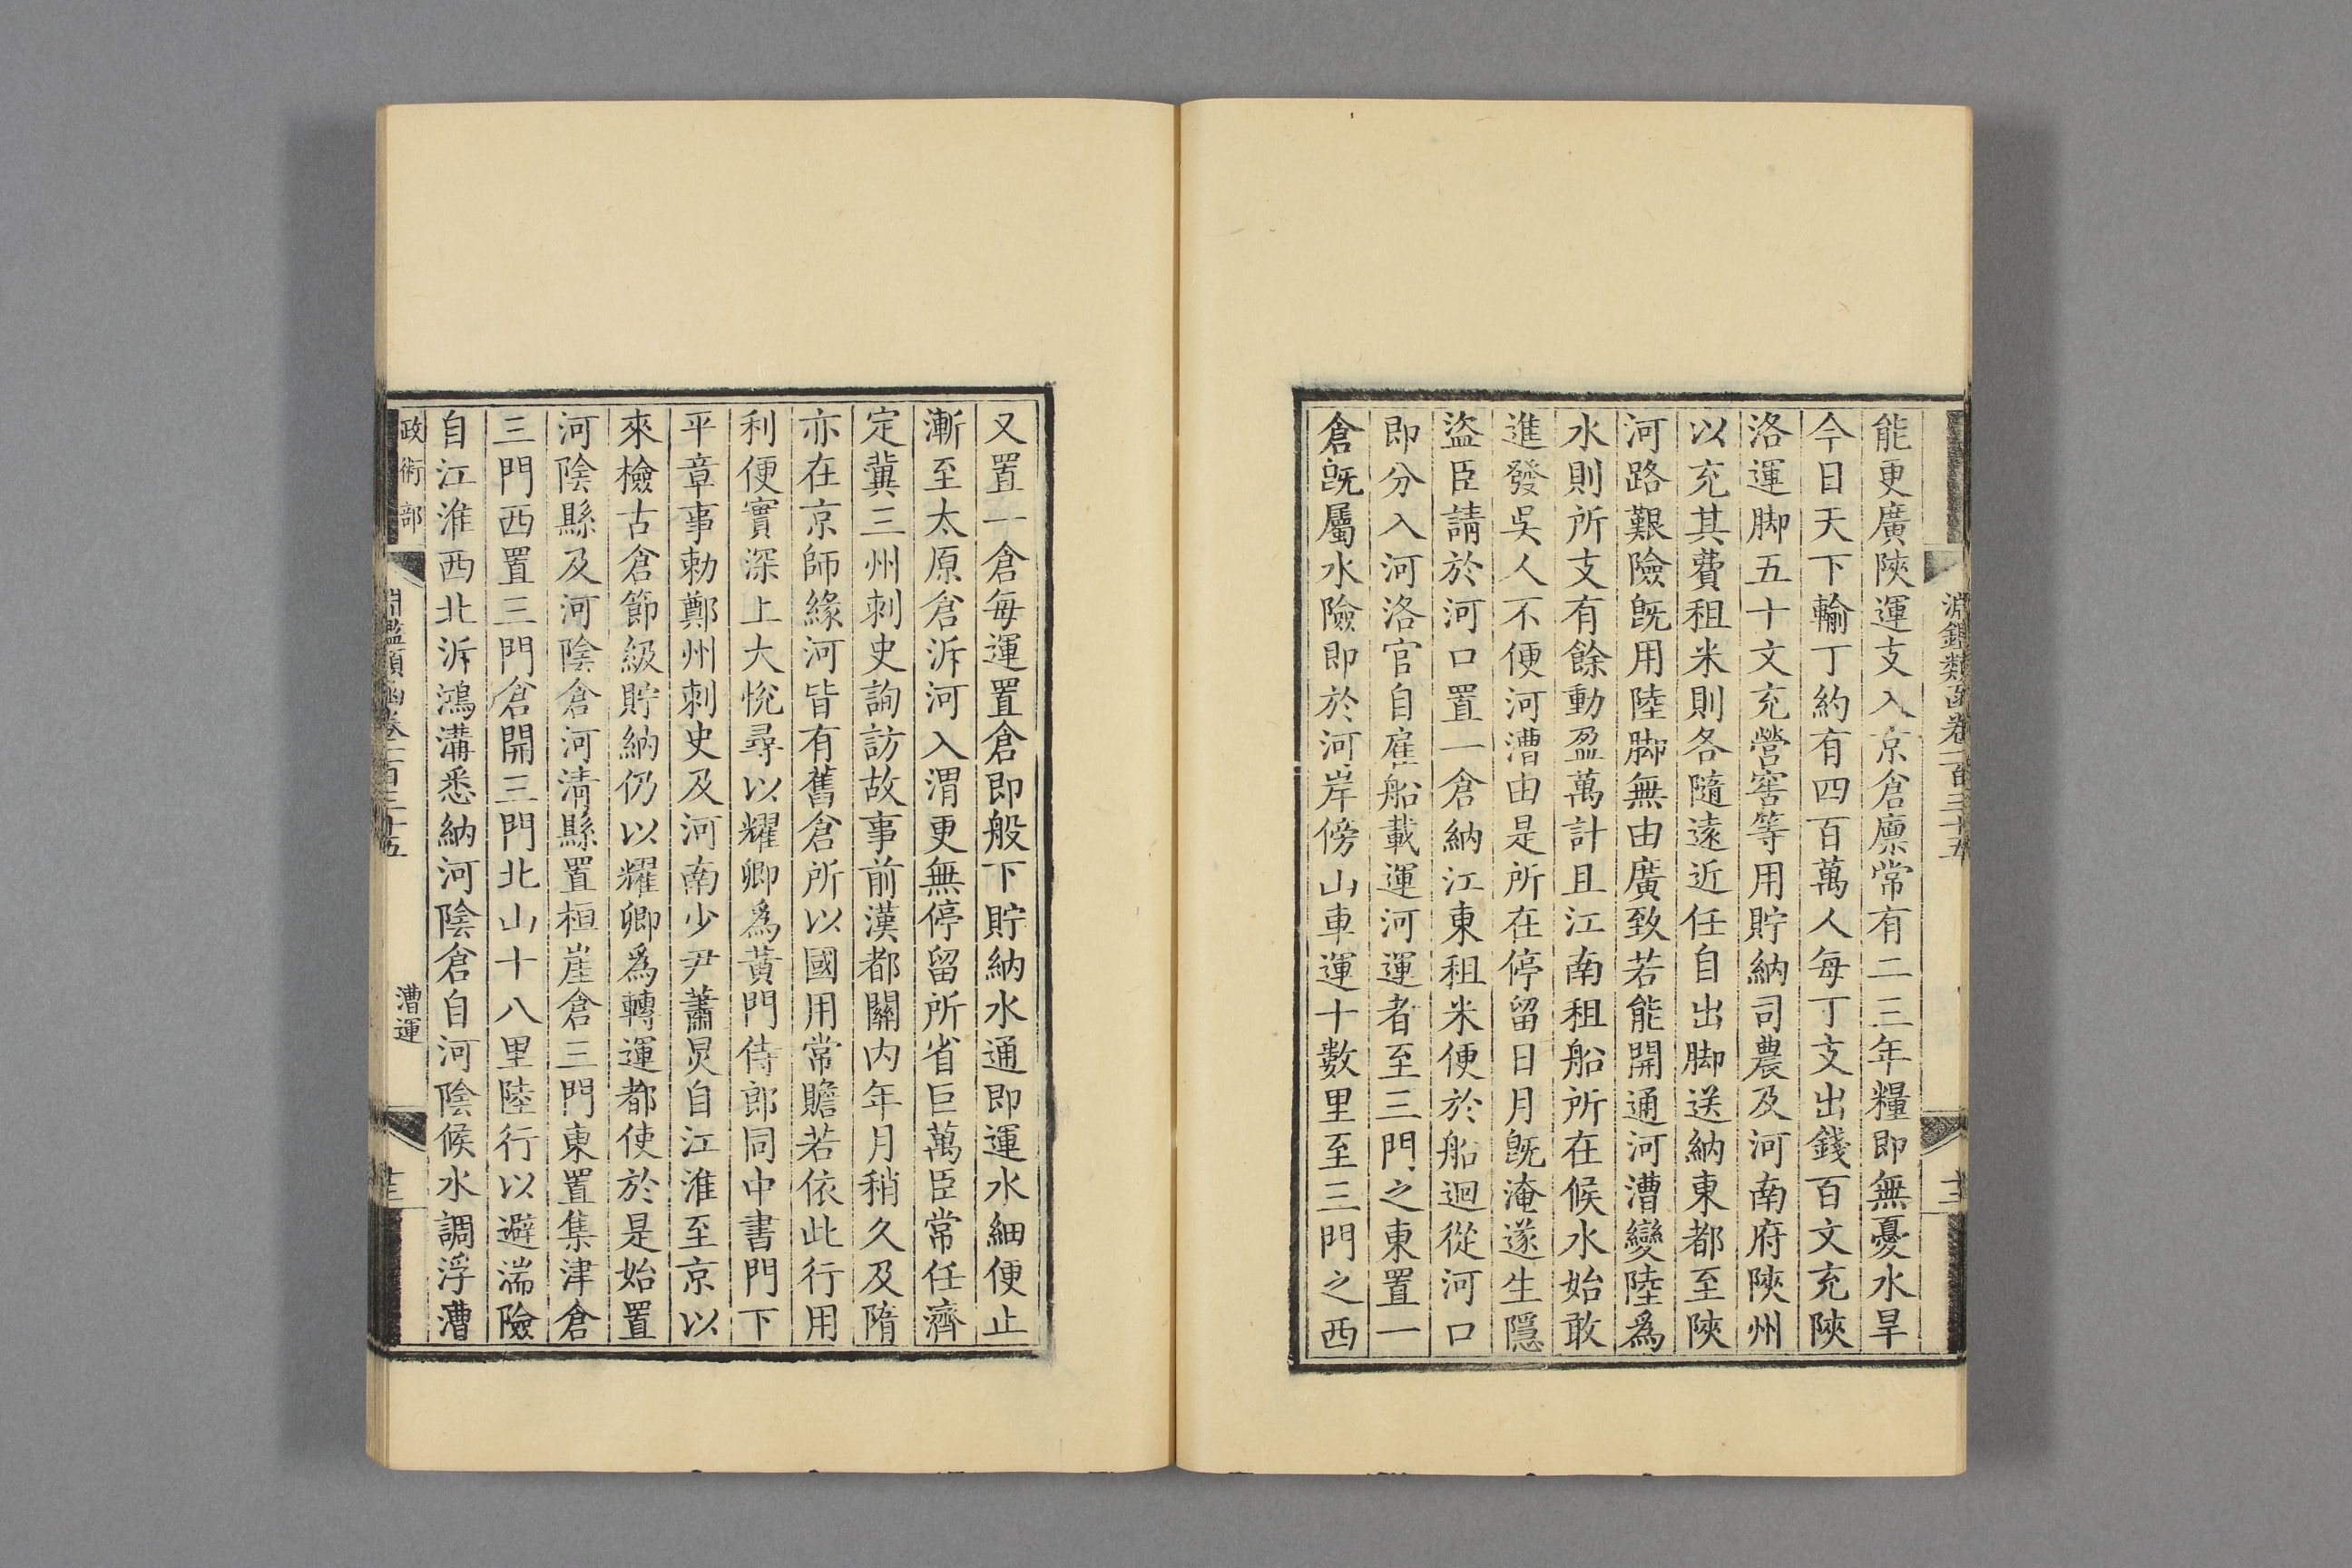 淵鑑類函卷一百三十五
十二
能更廣陝運支入京倉廪常有二三年糧即無憂水旱
今日天下輸丁約有四百萬人每丁支出錢百文充陝
洛運脚五十文充營窖等用貯納司農及河南府陝州
以充其費租米則各隨遠近任自出脚送納東都至陝
河路艱險旣用陸脚無由廣致若能開通河漕變陸爲
水則所支有餘動盈萬計且江南租船所在候水始敢
進發吳人不便河漕由是所在停留日月旣淹遂生隱
盜臣請於河口置一倉納江東租米便於船迴從河口
即分入河洛官自雇船載運河運者至三門之東置一
倉旣屬水險即於河岸傍山車運十數里至三門之西
又置一倉每運置倉即般下貯納水通即運水細便止
漸至太原倉泝河入渭更無停留所省巨萬臣常任濟
定冀三州刺史詢訪故事前漢都關内年月稍久及隋
亦在京師緣河皆有舊倉所以國用常贍若依此行用
利便實深上大悅尋以耀卿爲黄門侍郎同中書門下
平章事勅鄭州刺史及河南少尹蕭炅自江淮至京以
來檢古倉節級貯納仍以耀卿爲轉運都使於是始置
河陰縣及河陰倉河清縣置桓崖倉三門東置集津倉
三門西置三門倉開三門北山十八里陸行以避湍險
自江淮西北泝鴻溝悉納河陰倉自河陰候水調浮漕
政術部
淵鑑類函卷一百三十五
漕運
十三